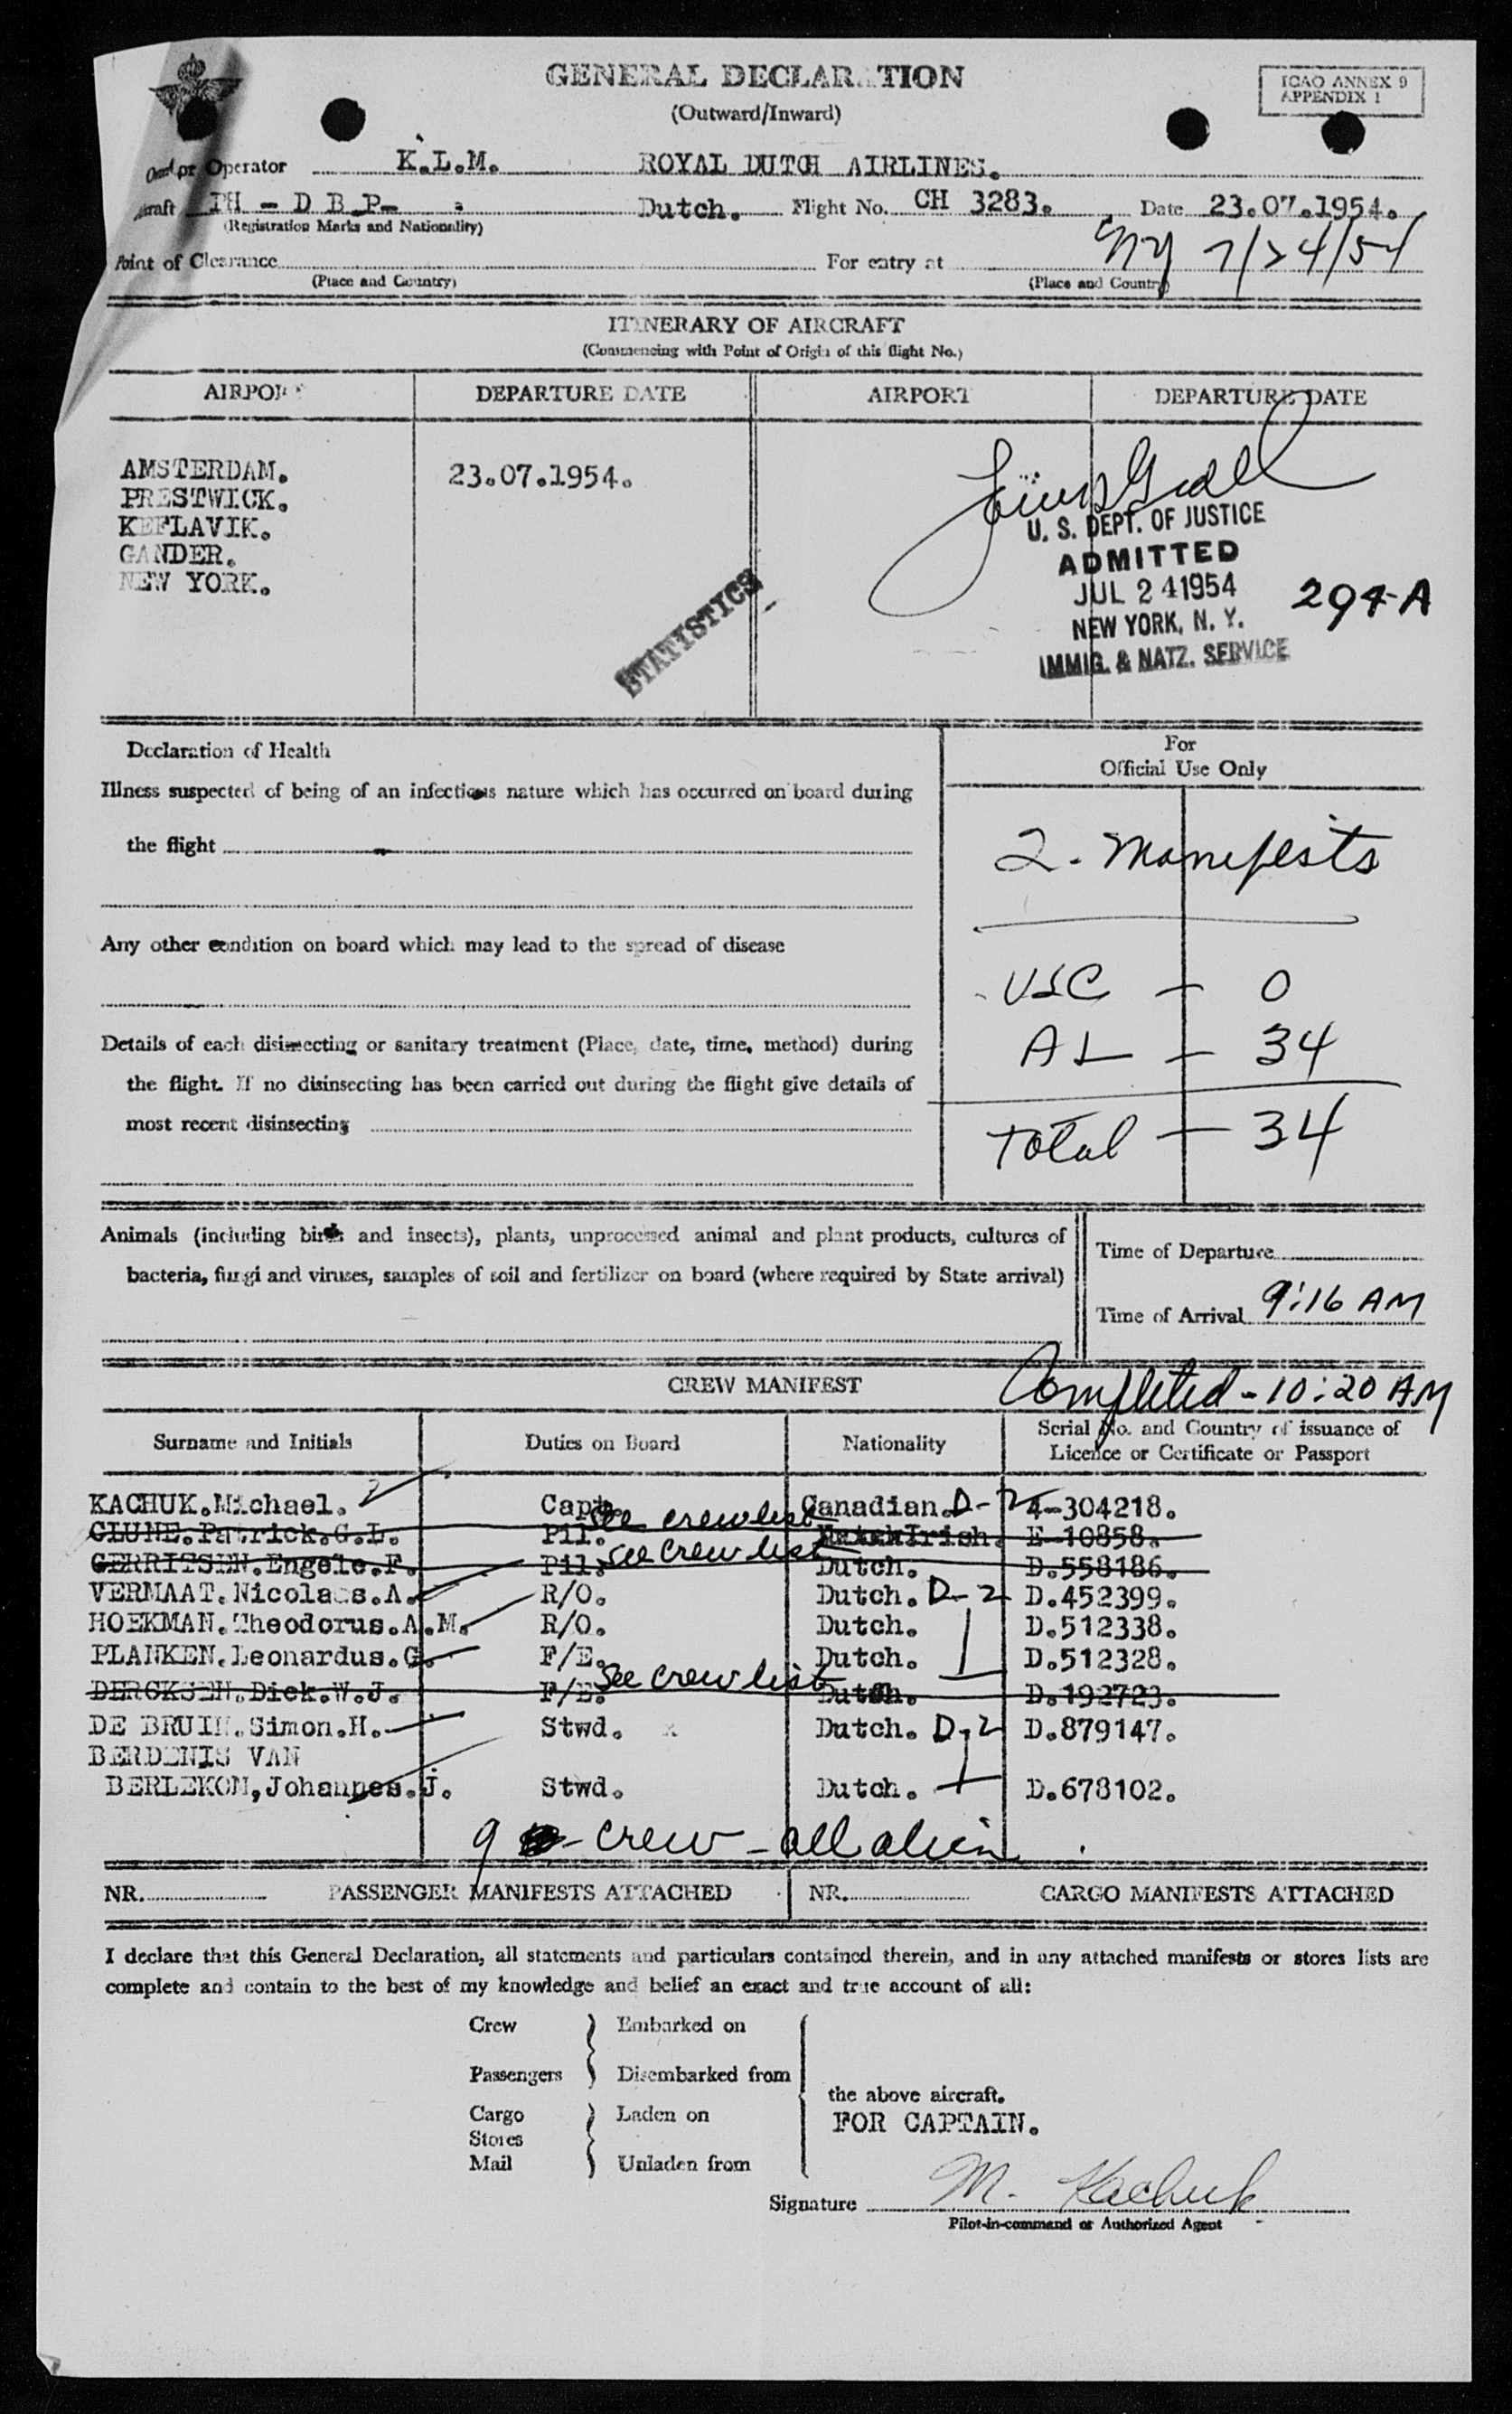 GENERAL DECLARATION
(Outward/Inward)
ICAO ANNEX 9
APPENDIX 1
or Operator K.L.M. ROYAL DUTCH AIRLINES.
PH - D B P- Dutch. Flight No. CH 3283. Date 23.07.1954.
(Registration Marks and Nationality)
Point of Clearance For entry at NY 7/24/54
(Place and Country) (Place and Country)
ITINERARY OF AIRCRAFT
(Commencing with Point of Origin of this flight No.)
AIRPORT DEPARTURE DATE AIRPORT DEPARTURE DATE
AMSTERDAM. 23.07.1954.
PRESTWICK.
KEFLAVIK.
GANDER.
NEW YORK.
STATISTICS
U. S. DEPT. OF JUSTICE
ADMITTED
JUL 24 1954
NEW YORK, N. Y.
IMMIG. & NATZ. SERVICE
294-A
Declaration of Health
For
Official Use Only
Illness suspected of being of an infectious nature which has occurred on board during
the flight -
2 - Manifests
Any other condition on board which may lead to the spread of disease
USC - 0
Details of each disinsecting or sanitary treatment (Place, date, time, method) during
AL - 34
the flight. If no disinsecting has been carried out during the flight give details of
most recent disinsecting
Total - 34
Animals (including birds and insects), plants, unprocessed animal and plant products, cultures of
bacteria, fungi and viruses, samples of soil and fertilizer on board (where required by State arrival)
Time of Departure
Time of Arrival 9:16 AM
CREW MANIFEST
Completed - 10:20 AM
Surname and Initials Duties on Board Nationality Serial No. and Country of issuance of
Licence or Certificate or Passport
KACHUK.Michael. Capt. Canadian. D-2 4-304218.
CLUNE.Patrick.G.L. Pil. See crew list Irish. E-10858.
GERRITSEN.Engele.F. Pil. See crew list Dutch. D.558186.
VERMAAT.Nicolaas.A. R/O. Dutch. D-2 D.452399.
HOEKMAN.Theodorus.A.M. R/O. Dutch. D.512338.
PLANKEN.Leonardus.G. F/E. Dutch. D.512328.
DERCKSEN.Dick.W.J. F/E. See crew list Dutch. D.192723.
DE BRUIN.Simon.H. Stwd. Dutch. D-2 D.879147.
BERDENIS VAN
BERLEKOM,Johannes.J. Stwd. Dutch. D.678102.
9 - crew - all alien
NR. PASSENGER MANIFESTS ATTACHED NR. CARGO MANIFESTS ATTACHED
I declare that this General Declaration, all statements and particulars contained therein, and in any attached manifests or stores lists are
complete and contain to the best of my knowledge and belief an exact and true account of all:
Crew Embarked on
Passengers Disembarked from
the above aircraft.
Cargo Laden on
FOR CAPTAIN.
Stores
Mail Unladen from
Signature M. Kachuk
Pilot-in-command or Authorized Agent